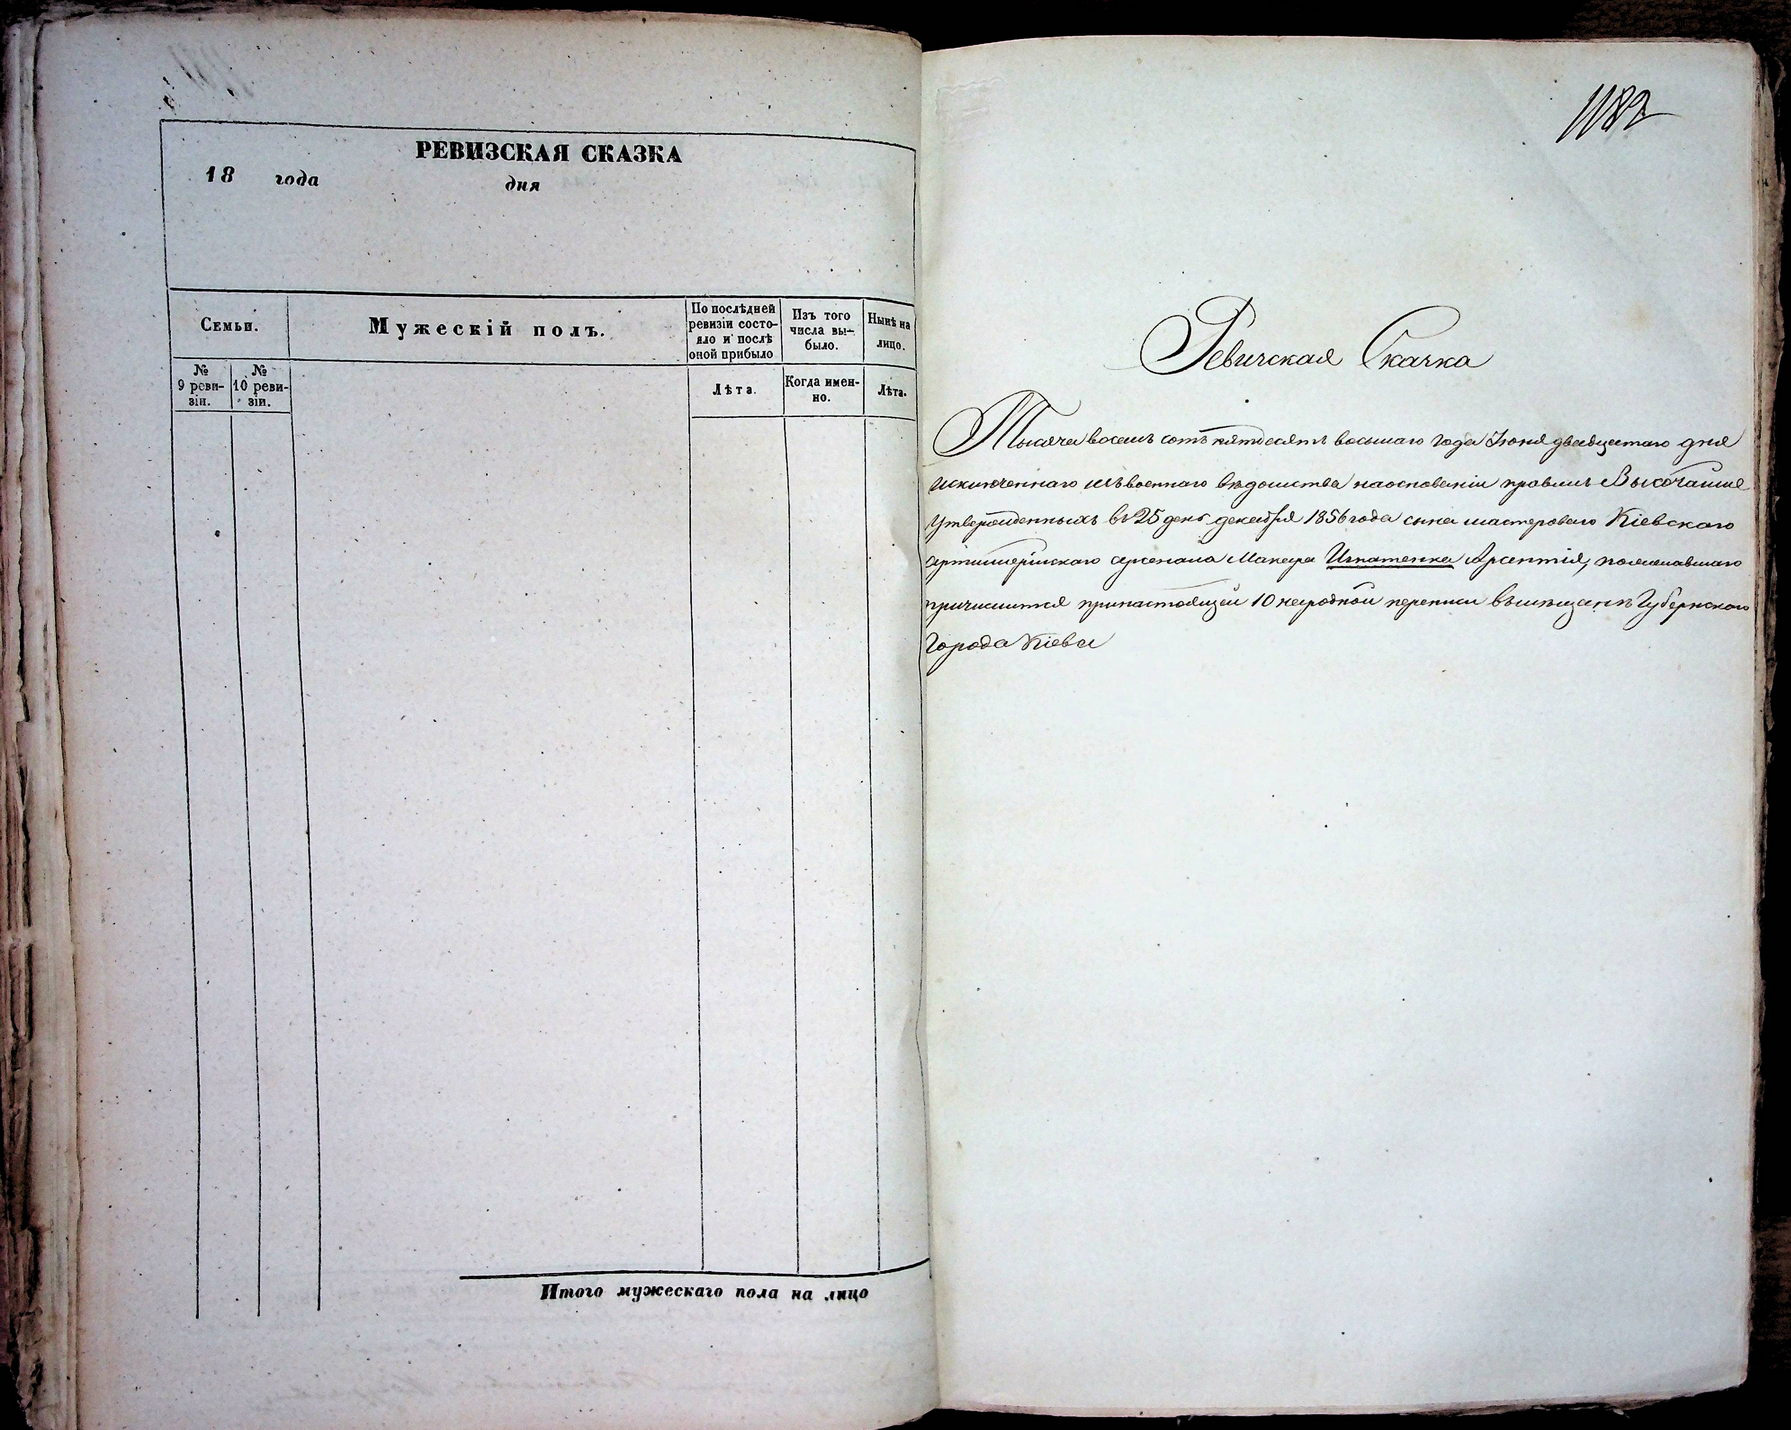 РЕВИЗСКАЯ СКАЗКА
18 года дня
Семьи.
Мужескій полъ.
По послѣдней
ревизіи состо-
яло и послѣ
оной прибыло
Изъ того
числа вы-
было.
Нынѣ на
лицо.
№
9 реви-
зіи.
№
10 реви-
зіи.
Лѣта.
Когда имен-
но.
Лѣта.
Итого мужескаго пола на лицо
1182
Ревизская Сказка
Тысяча восемь сотъ пятдесятъ восьмаго года Іюня двадцатаго дня
исключеннаго изъ военнаго вѣдомства на основаніи правилъ Высочайше
утвержденныхъ въ 25 день декабря 1856 года сына мастероваго Кіевскаго
артиллерійскаго арсенала Макара Игнатенка Арсентія, пожелавшаго
причислится при настоящей 10 народной переписи въ мѣщане Губернскаго
Города Кіева